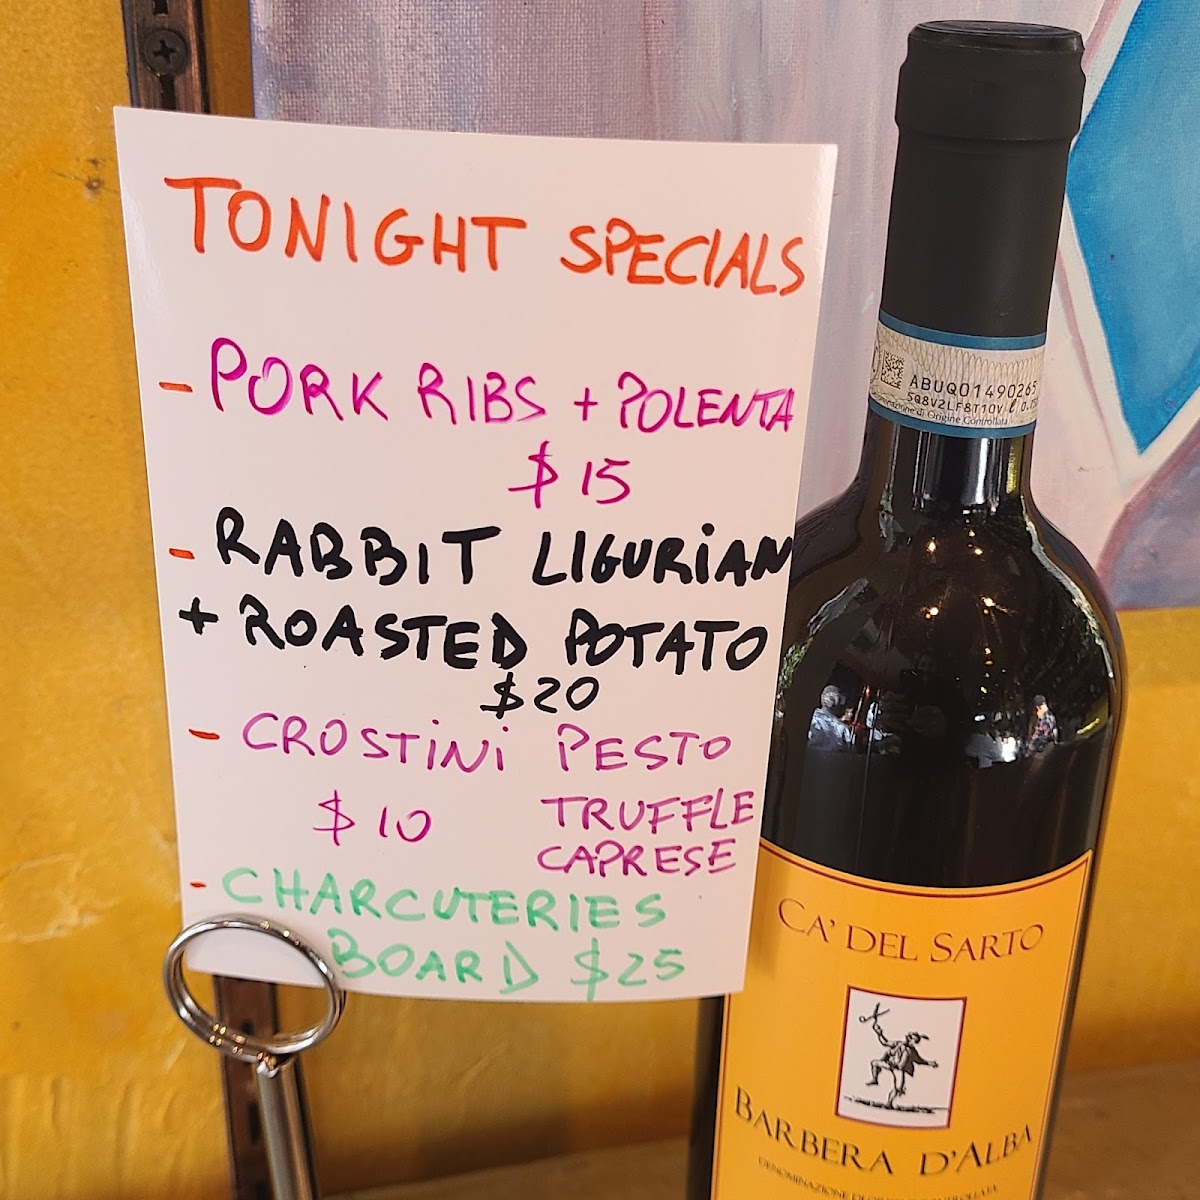 TONIGHT SPECIALS
- PORK RIBS + POLENTA
$15
- RABBIT LIGURIAN
+ ROASTED POTATO
$20
- CROSTINI PESTO
$10 TRUFFLE
CAPRESE
- CHARCUTERIES
BOARD $25
ABUQ01490265
5Q8V2LF8T10V
di Origine Controllata
CA' DEL SARTO
BARBERA D'ALBA